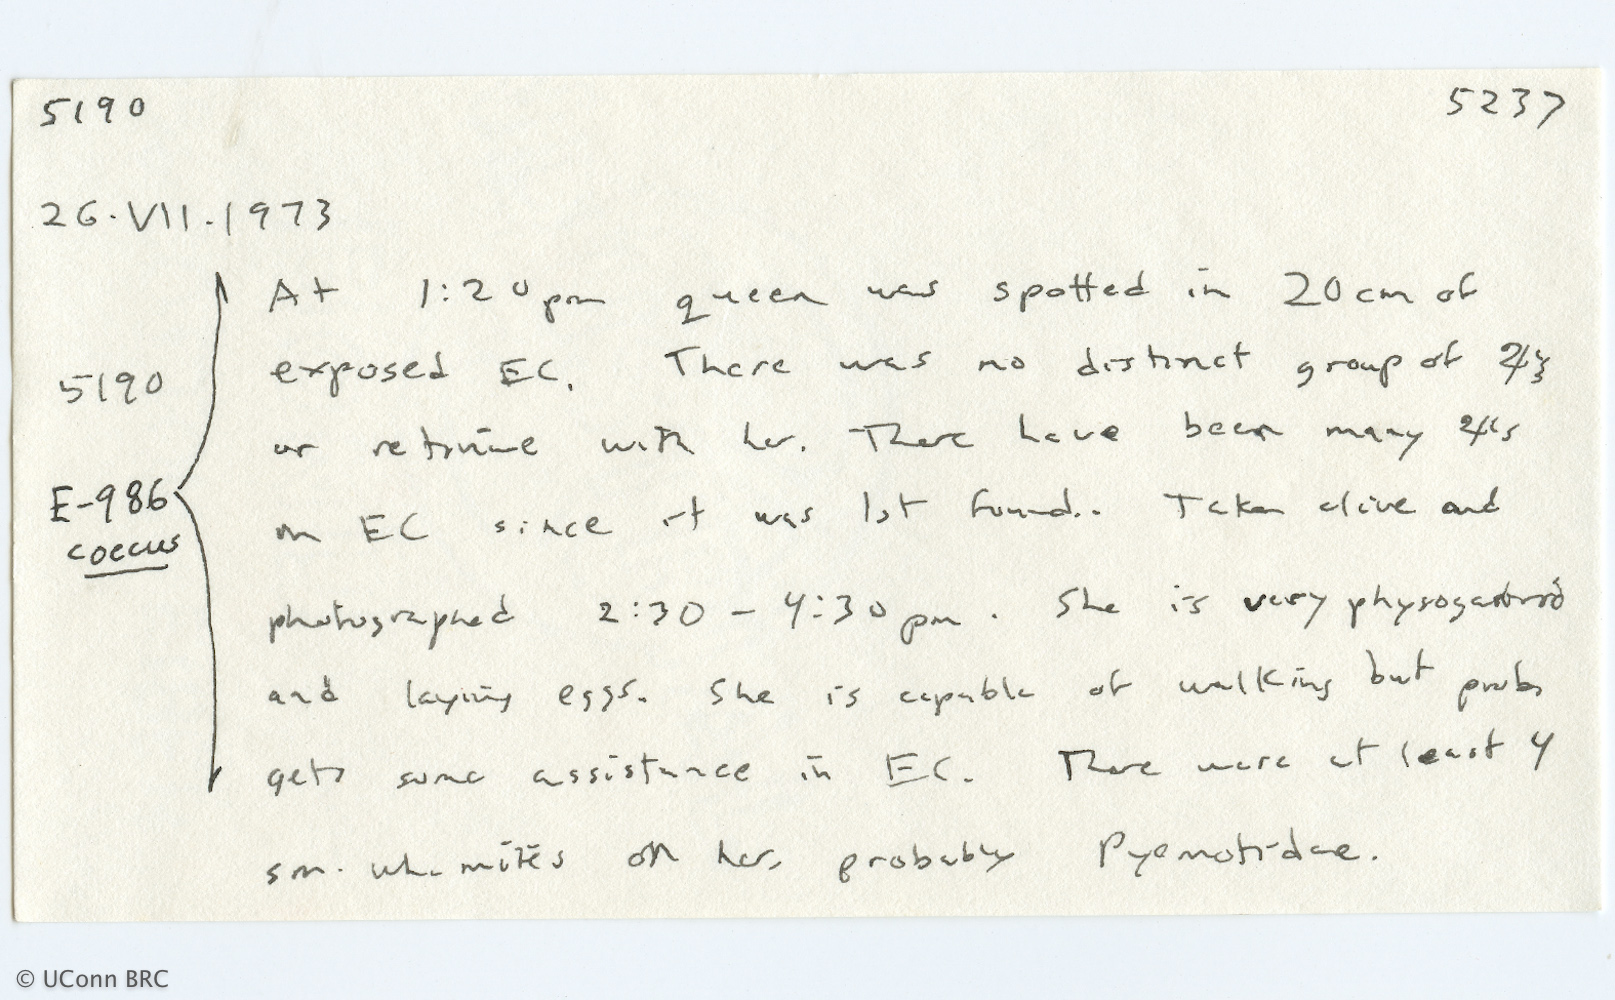 5190 5237
26.VII.1973
At 1:20pm queen was spotted in 20cm of
exposed EC. There was no distinct group of
5190
or retinue with her. There have been many
E-986
on EC since it was 1st found.. Taken alive and
coecus
photographed 2:30 - 4:30pm. She is very physogastric
and laying eggs. She is capable of walking but prob
gets some assistance in EC. There were at least 4
sm. wh. mites on her, probably Pyemotidae.
© UConn BRC